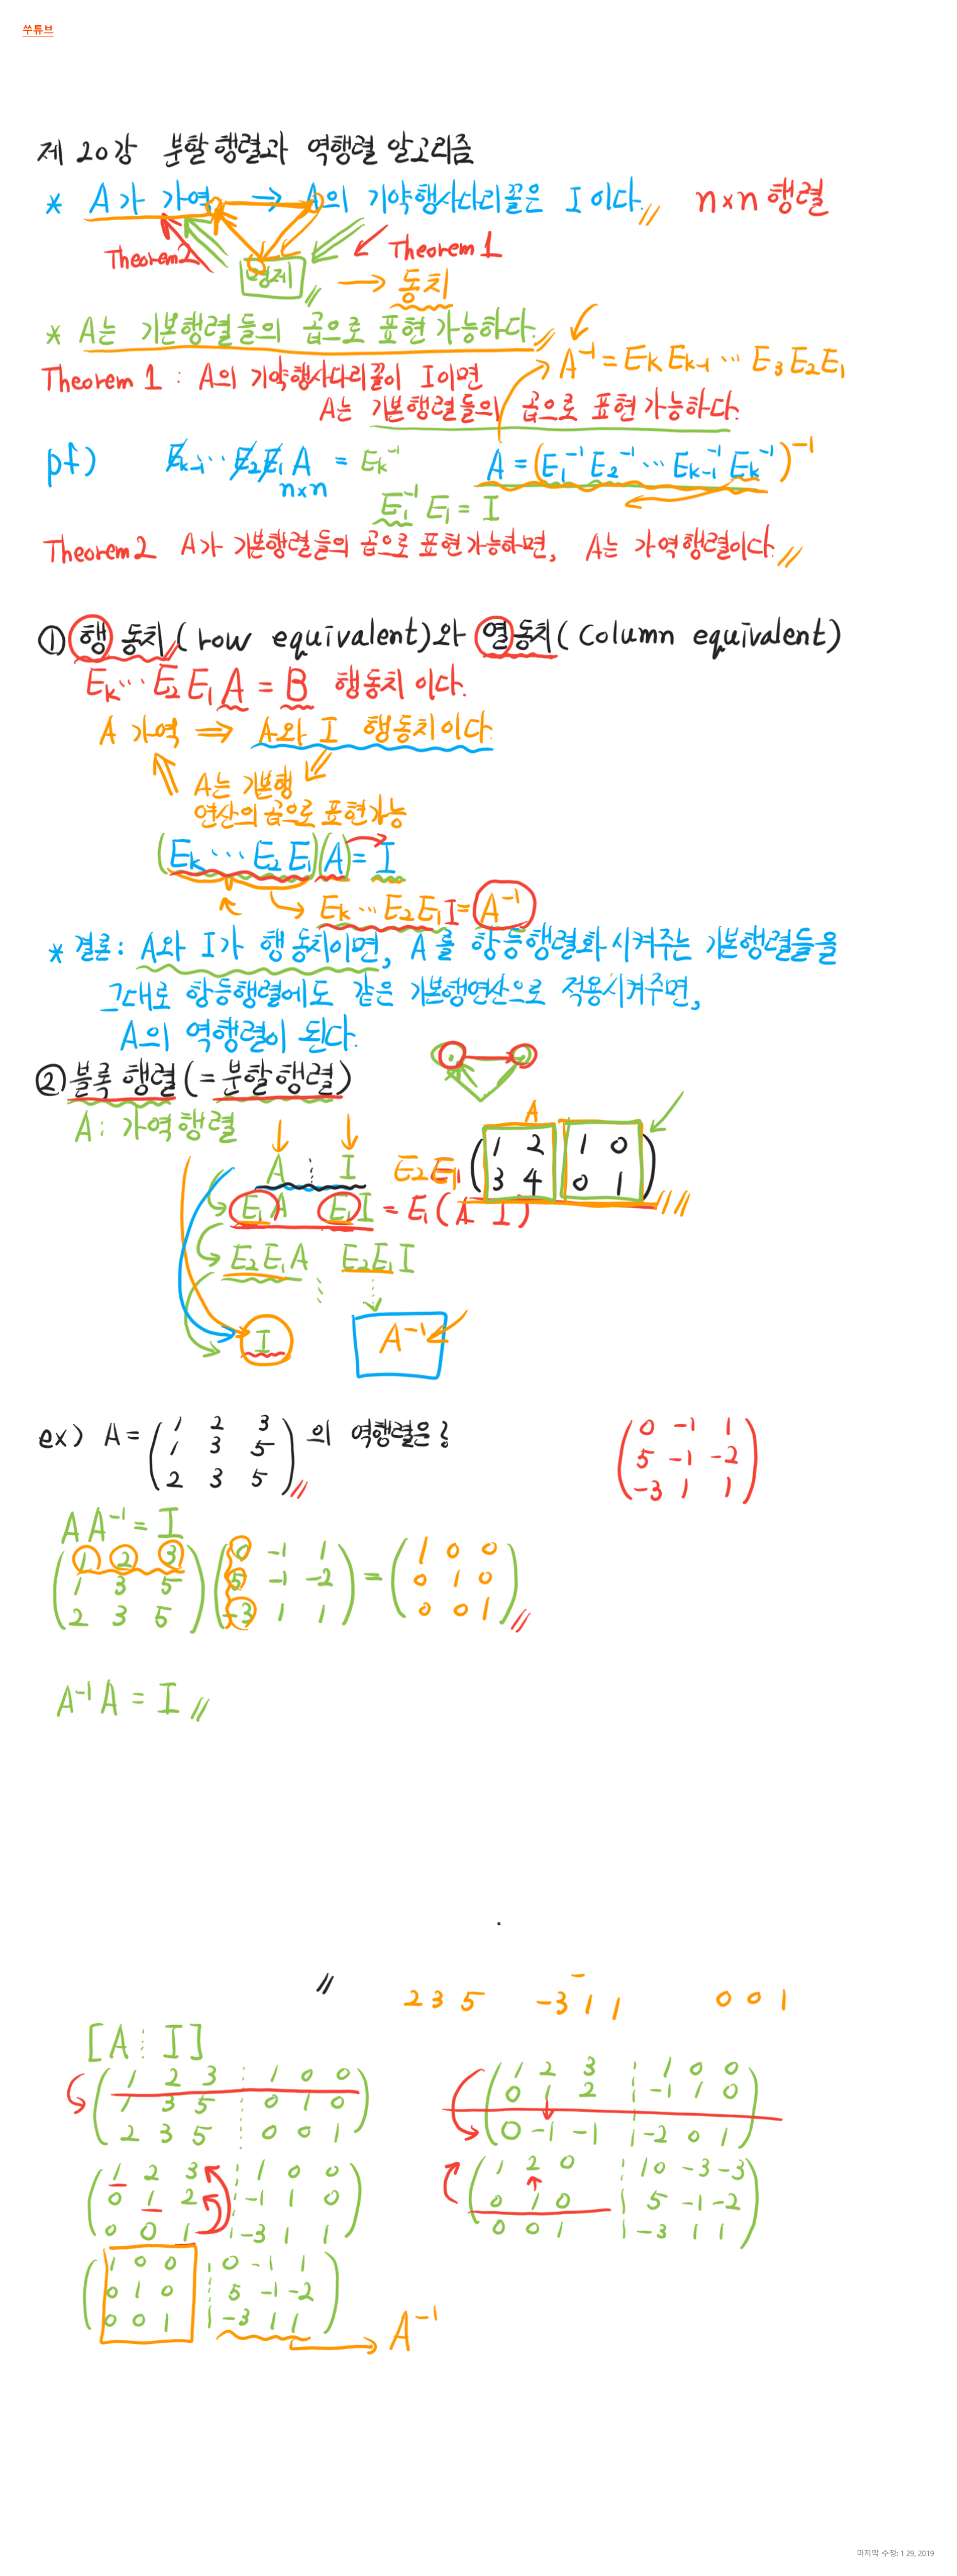 쑤튜브
제 20강 분할행렬과 역행렬 알고리즘
* A가 가역 → A의 기약행사다리꼴은 I이다. n×n 행렬
Theorem2 명제 Theorem 1
→ 동치
* A는 기본행렬들의 곱으로 표현 가능하다.
A⁻¹ = Ek Ek-1 ⋯ E3 E2 E1
Theorem 1 : A의 기약행사다리꼴이 I이면
A는 기본행렬들의 곱으로 표현 가능하다.
pf) Ek-1 ⋯ E2 E1 A = Ek⁻¹ A = (E1⁻¹ E2⁻¹ ⋯ Ek-1⁻¹ Ek⁻¹)⁻¹
n×n
E1⁻¹ E1 = I
Theorem2 A가 기본행렬들의 곱으로 표현 가능하면, A는 가역행렬이다.
① 행동치(row equivalent)와 열동치(Column equivalent)
Ek ⋯ E2 E1 A = B 행동치 이다.
A 가역 ⇒ A와 I 행동치이다.
A는 기본행
연산의 곱으로 표현가능
(Ek ⋯ E2 E1)(A) = I
→ Ek ⋯ E2 E1 I = A⁻¹
* 결론: A와 I가 행 동치이면, A를 항등행렬화 시켜주는 기본행렬들을
그대로 항등행렬에도 같은 기본행연산으로 적용시켜주면,
A의 역행렬이 된다.
② 블록 행렬 (= 분할 행렬)
A: 가역행렬
A
A ⋮ I E2 E1 ( 1 2 1 0
3 4 0 1 )
E1 A E1 I = E1 ( A I )
E2 E1 A E2 E1 I
I A⁻¹
ex) A = ( 1 2 3
1 3 5
2 3 5 ) 의 역행렬은?
( 0 -1 1
5 -1 -2
-3 1 1 )
A A⁻¹ = I
( 1 2 3 ) ( 0 -1 1 ) = ( 1 0 0 )
( 1 3 5 ) ( 5 -1 -2 ) ( 0 1 0 )
( 2 3 5 ) ( -3 1 1 ) ( 0 0 1 )
A⁻¹ A = I
2 3 5 -3 1 1 0 0 1
[A ⋮ I]
( 1 2 3 ⋮ 1 0 0 )
( 1 3 5 ⋮ 0 1 0 )
( 2 3 5 ⋮ 0 0 1 )
( 1 2 3 ⋮ 1 0 0 )
( 0 1 2 ⋮ -1 1 0 )
( 0 -1 -1 ⋮ -2 0 1 )
( 1 2 3 ⋮ 1 0 0 )
( 0 1 2 ⋮ -1 1 0 )
( 0 0 1 ⋮ -3 1 1 )
( 1 2 0 ⋮ 10 -3 -3 )
( 0 1 0 ⋮ 5 -1 -2 )
( 0 0 1 ⋮ -3 1 1 )
( 1 0 0 ⋮ 0 -1 1 )
( 0 1 0 ⋮ 5 -1 -2 )
( 0 0 1 ⋮ -3 1 1 )
→ A⁻¹
마지막 수정: 1 29, 2019